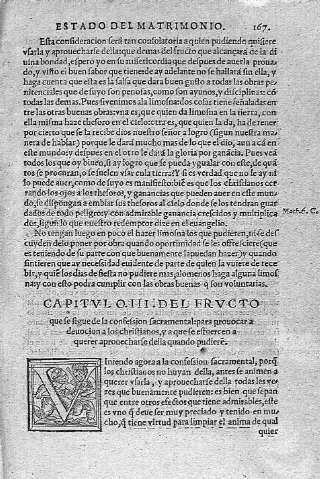 ESTADO DEL MATRIMONIO. 167.
Esta consideracion será tan consolatoria a quien pudiendo quisiere
vsarla y aprouecharse della: que demas del fructo que alcançará de la di
uina bondad, espero yo en su misericordia que despues de auerla proua-
do, y visto el buen sabor que tiene de ay adelante no se hallará sin ella, y
haga cuenta que esta es la salsa que dara buen gusto a todas las obras pe-
nitenciales que de suyo son penosas, como son ayunos, y disciplinas: cõ
todas las demas. Pues si venimos a la limosna: dos cosas tiene señaladas en
tre las otras buenas obras: vna es, que quien da limosna en la tierra, con
ella misma haze thesoro en el cielo: otra es, que quien la da, ha de tener
por cierto que se la recibe dios nuestro señor a logro (segun nuestra ma
nera de hablar) porque le dará mucho mas de lo que el dio, aun acá en
este mundo: y despues en el otro le dará la gloria por ganãcia. Pues veã
todos los que oy biuen, si ay logro que se pueda ygualar con este, de quã
tos se procuran, o se suelen vsar en la tierra? Y si es verdad que no le ay ni
lo puede auer, como de suyo es manifiesto: biẽ es que los christianos cer
rando los ojos a los thesoros, y ganãcias que pueden auer en este mun-
do, se dispongan a embiar sus thesoros al cielo donde se los tendran guar
dados de todo peligro: y con admirable ganancia crescidos y multiplica
dos, segun lo que nuestro redemptor dize en el euangelio.
Math. 6. C.
No tengan luego en poco el hazer limosna los que pudieren, ni se des
cuyden de lo poner por obra quando oportunidad se les offresciere (que
es teniendo de su parte con que buenamente la puedan hazer) y quando
sintieren que ay necessidad euidente de parte de quien la vuiere de rece-
bir, y q̃ si los dias de fiesta no pudiere mas, alomenos haga alguna limos
na: y con esto podra cumplir con las obras buenas q̃ son voluntarias.
CAPITVLO. III. DEL FRVCTO
que se sigue de la confession sacramental: para prouocar a
deuocion a los christianos, y a que se esfuercen a
querer aprouecharse della quando pudierẽ.
VIniendo agora a la confession sacramental, porq̃
los christianos no huyan della, antes se animen a
querer vsarla, y aprouecharse della todas las ve-
zes que buenamente pudieren: es bien que sepan
que entre otros efectos que tiene admirables, este
es vno q̃ deue ser muy preciado y tenido en mu-
cho, q̃ tiene virtud para limpiar el anima de qual
quier